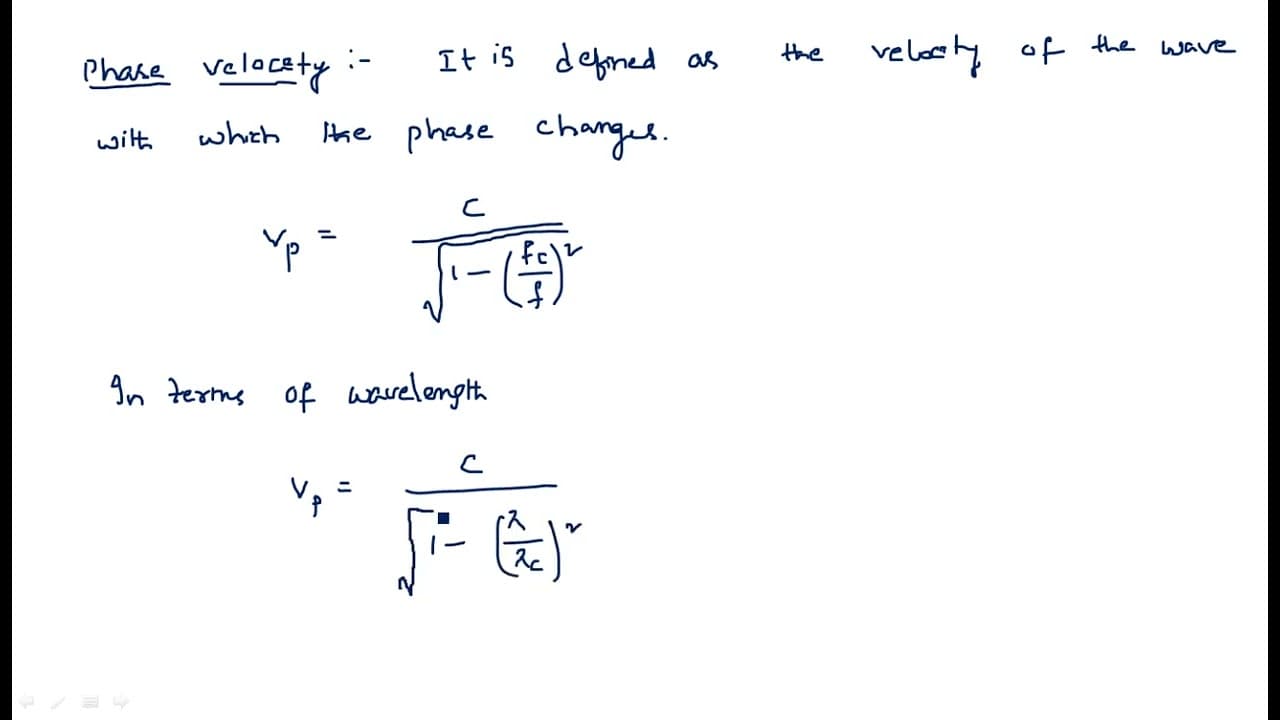 Phase velocety :- It is defined as the velocity of the wave
with which the phase changes.
Vp = c / √(1 - (fc/f)²)
In terms of wavelength
Vp = c / √(1 - (λ/λc)²)